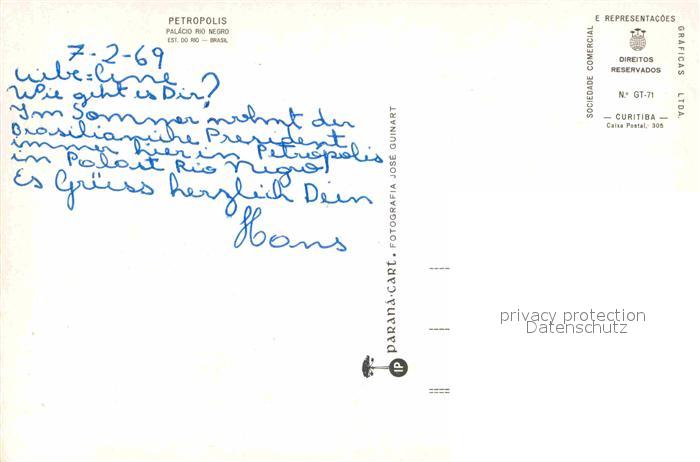 PETROPOLIS
PALÁCIO RIO NEGRO
EST. DO RIO — BRASIL
7-2-69
Wie geht es Dir?
Im Sommer wohnt der
Brasilianiche President
immer hier in Petropolis
im Palast Rio Negro!
Es Grüss herzlich Dein
Hans
PARANÁ-CART. FOTOGRAFIA JOSÉ GUINART
IP
SOCIEDADE COMERCIAL
E REPRESENTAÇÕES
GRÁFICAS LTDA.
DIREITOS
RESERVADOS
N.º GT-71
— CURITIBA —
Caixa Postal, 305
privacy protection
Datenschutz